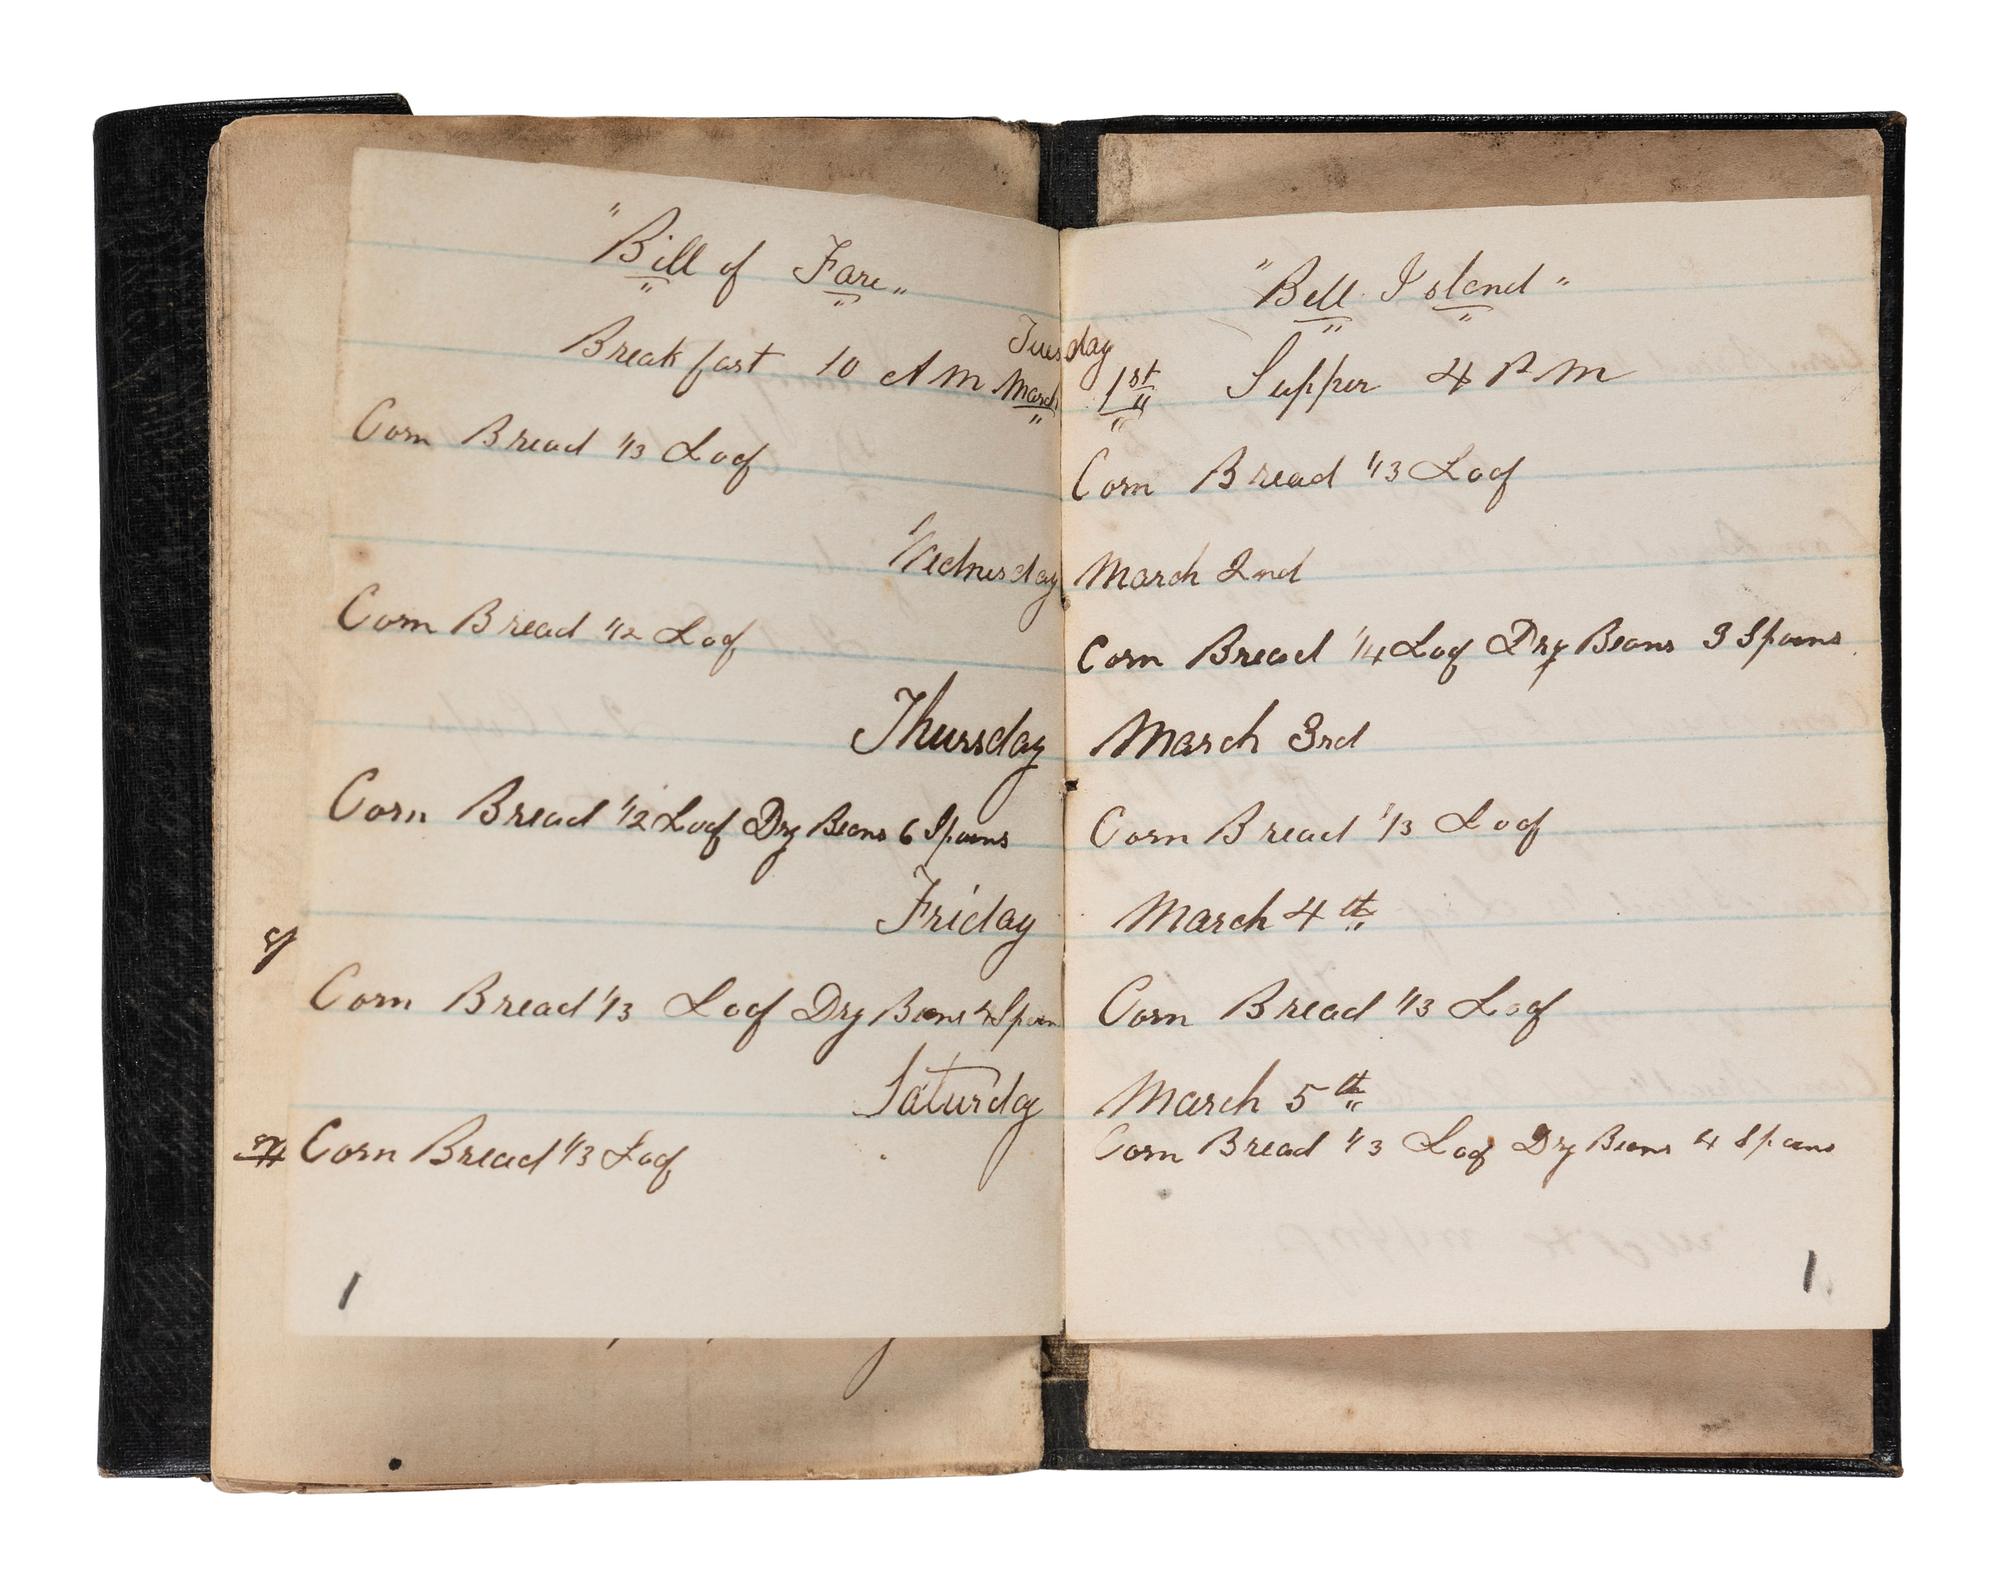 "Bill of Fare"
Breakfast 10 A M
Corn Bread 1/3 Loaf
Corn Bread 1/2 Loaf
Corn Bread 1/2 Loaf Dry Beans 6 Spoons
Corn Bread 1/3 Loaf Dry Beans 4 Spoon
Corn Bread 1/3 Loaf
1
"Bell Island"
Tuesday
March 1st Supper 4 P M
Corn Bread 1/3 Loaf
Wednesday March 2nd
Corn Bread 1/4 Loaf Dry Beans 3 Spoons
Thursday March 3rd
Corn Bread 1/3 Loaf
Friday March 4th
Corn Bread 1/3 Loaf
Saturday March 5th
Corn Bread 1/3 Loaf Dry Beans 4 Spoons
1